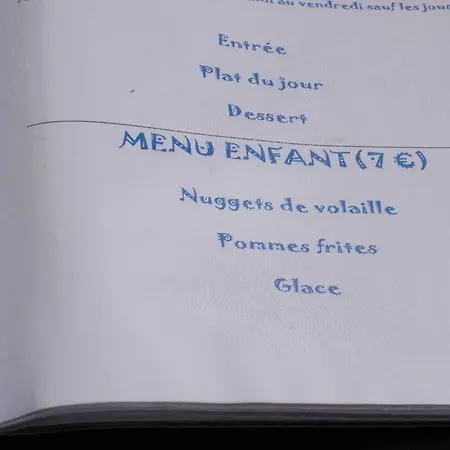 au vendredi sauf les jour
Entrée
Plat du jour
Dessert
MENU ENFANT (7 €)
Nuggets de volaille
Pommes frites
Glace